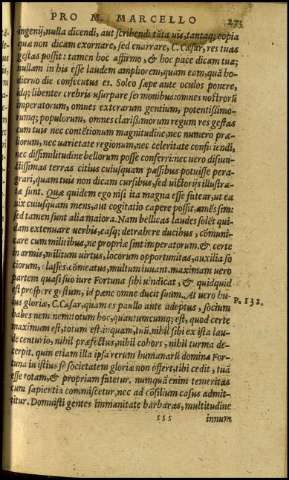 PRO M. MARCELLO 273
ingenij, nulla dicendi, aut scribendi tāta uis, tantaq; copia
qua non dicam exornare, sed enarrare, C. Cæsar, res tuas
gestas possit: tamen hoc affirmo, & hoc pace dicam tua;
nullam in his esse laudem ampliorem, quam eam, quā ho-
dierno die consecutus es. Soleo sæpe ante oculos ponere,
idq; libenter crebris usurpare sermonibus: omnes nostrorū
imperatorum, omnes exterarum gentium, potentissimo-
rumq; populorum, omnes clarissimorum regum res gestas
cum tuis nec contētionum magnitudine, nec numero præ-
liorum, nec uarietate regionum, nec celeritate conficiendi,
nec dissimilitudine bellorum posse conferri: nec uero disiun-
ctissimas terras citius cuiusquam passibus potuisse pera-
grari, quam tuis non dicam cursibus, sed uictorijs illustra-
tæ sunt. Quæ quidem ego nisi ita magna esse fatear, ut ea
uix cuiusquam mens, aut cogitatio capere possit, amēs sim:
sed tamen sunt alia maiora. Nam bellicas laudes solēt qui-
dam extenuare uerbis, easq; detrahere ducibus, cōmuni-
care cum militibus, ne propriæ sint imperatorum. & certe
in armis, militum uirtus, locorum opportunitas, auxilia so
ciorum, classes, cōmeatus, multum iuuant. maximam uero
partem quasi suo iure Fortuna sibi uindicat, & quidquid
est prospere gestum, id pæne omne ducit suum. At uero hu-
ius gloriæ, C. Cæsar, quam es paullo ante adeptus, socium P. 132.
habes neminem: totum hoc, quantumcumq; est, quod certe
maximum est, totum est, inquam, tuū. nihil sibi ex ista lau-
de centurio, nihil præfectus, nihil cohors, nihil turma de-
cerpit. quin etiam illa ipsa rerum humanarū domina For-
tuna in istius se societatem gloriæ non offert, tibi cedit, tuā
esse totam, & propriam fatetur. nunquā enim temeritas
cum sapientia commiscetur, nec ad consilium casus admit-
titur. Domuisti gentes immanitate barbaras, multitudine
sss innum